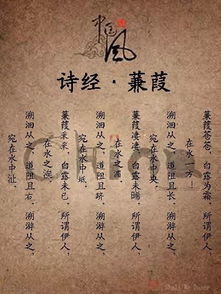 中国风
诗经·蒹葭
蒹葭苍苍，白露为霜。所谓伊人，
在水一方！
溯洄从之，道阻且长。溯游从之，
宛在水中央。
蒹葭凄凄，白露未晞。所谓伊人，
在水之湄。
溯洄从之，道阻且跻。溯游从之，
宛在水中坻。
蒹葭采采，白露未已。所谓伊人，
在水之涘。
溯洄从之，道阻且右。溯游从之，
宛在水中沚。